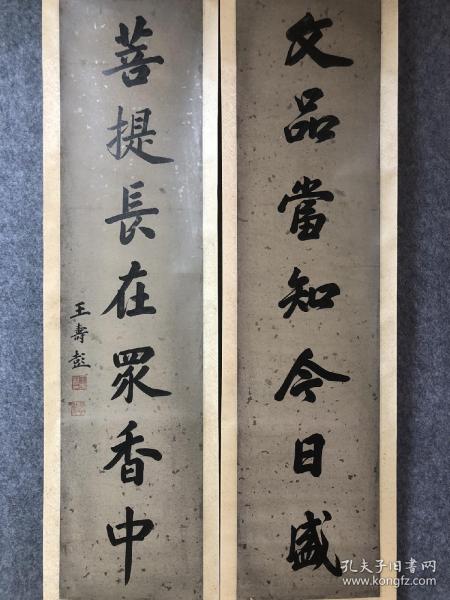 文品當知今日盛
菩提長在眾香中
王壽彭
孔夫子旧书网
www.kongfz.com